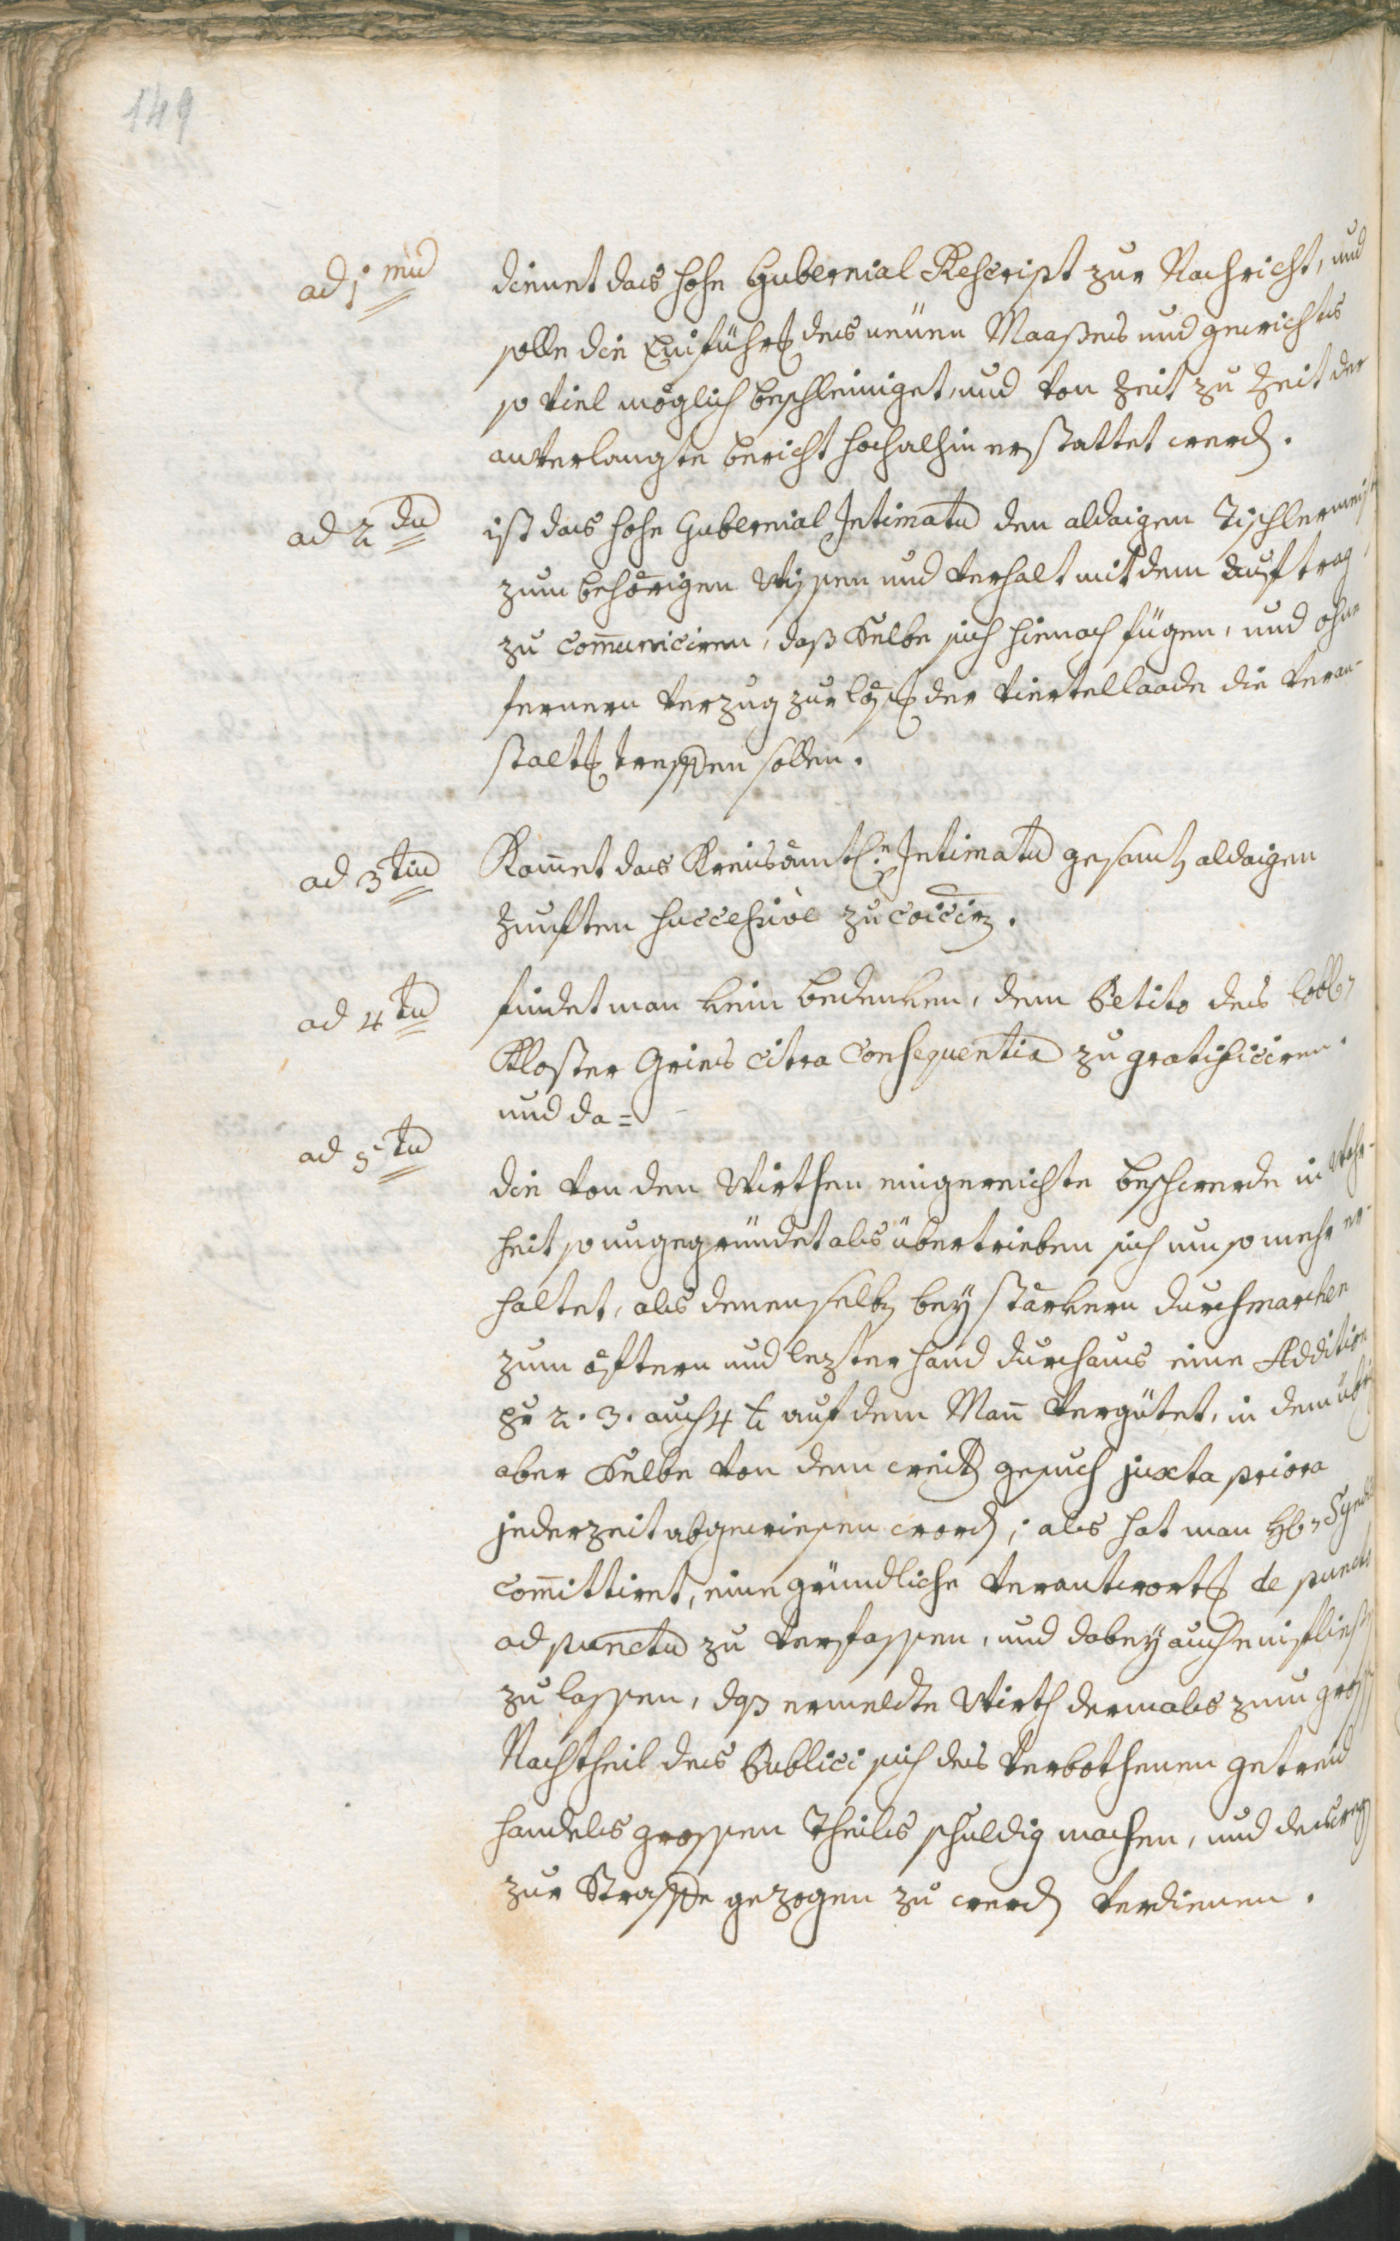 149
ad 1mu
dienet das hohe Gubernial Rescript zur Nachricht, und
solle die Einführung des neuen Maaßes und gewichts
so viel möglich beschleiniget, und von Zeit zu Zeit der
anverlangte bericht hochalhin erstattet werden.
ad 2du
ist das hohe Gubernial Intimatum den aldaigen Tischlermeist
zum behörigen wissen und verhalt mit dem auftrag
zu communiciren, daß Selbe sich hienach fügen, und ohne
fernern verzug zur der viertellaade die veran-
staltung treffen sollen.
ad 3tiu
Kommet das Kreisämtl. Intimatum gesamt aldaigen
Zunften successive zu coicirn.
ad 4tu
findet man kein bedenken, dem Petito des löbl.
Kloster Gries citra Consequentiam zu gratificiren.
und da=
ad 5tu
die von den Wirthen eingereichte beschwerde in Wahr-
heit so ungegründet als übertrieben sich um so mehr er-
haltet, als denenselben bey stärkern durchmarchen
zum öftern und lezter hand durchaus eine Addition
pr 2. 3. auch 4 x auf dem Mann vergütet, in dem übrig
aber Selbe von dem weitern gesuch juxta priora
jederzeit abgewiesen worden; als hat man H. Syndic
committiret, eine gründliche verantwortung de puncto
ad punctum zu verfassen, und dabey auch einfliessen
zu lassen, daß ermeldte Wirth dermals zum gross
Nachtheil des Publici sich des verbothenen getreid
handels grossen Theils schuldig machen, und deswegen
zur Straffe gezogen zu werden verdienen.